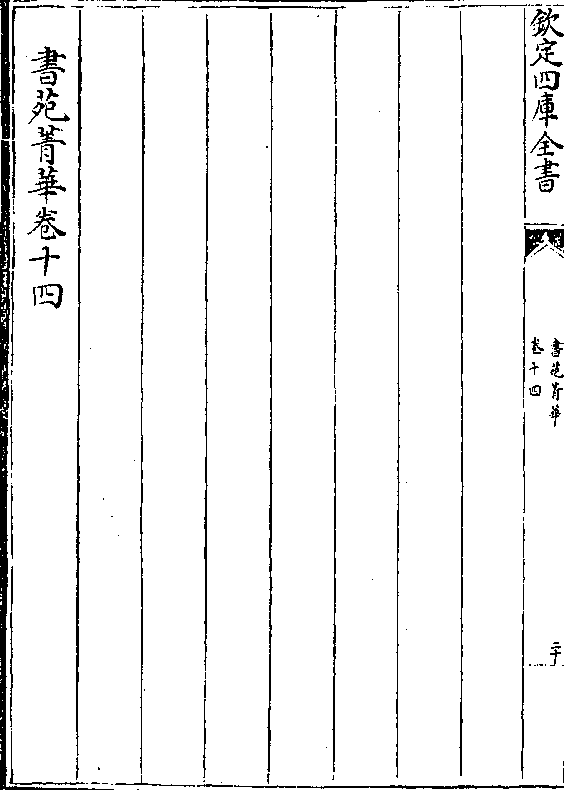 欽定四庫全書
書苑菁華
卷十四
二十
書苑菁華卷十四